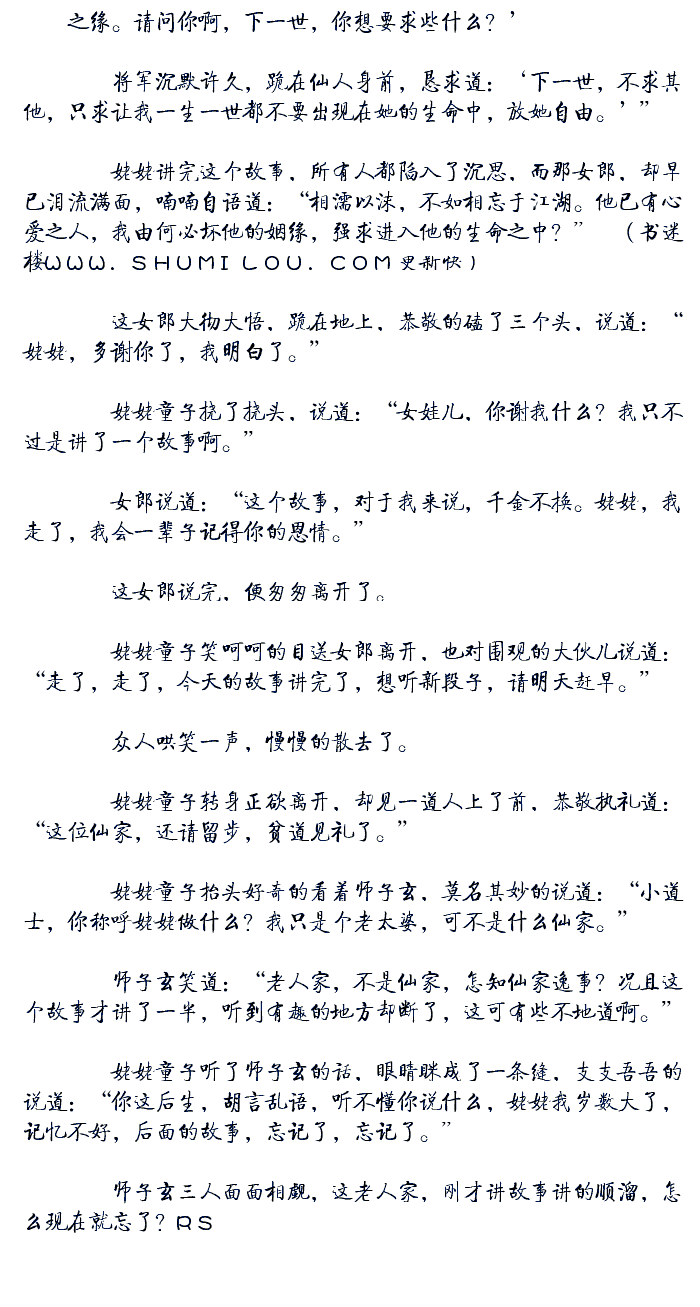 之缘。请问你啊，下一世，你想要求些什么？’
将军沉默许久，跪在仙人身前，恳求道：‘下一世，不求其
他，只求让我一生一世都不要出现在她的生命中，放她自由。’”
姥姥讲完这个故事，所有人都陷入了沉思，而那女郎，却早
已泪流满面，喃喃自语道：“相濡以沫，不如相忘于江湖。他已有心
爱之人，我由何必坏他的姻缘，强求进入他的生命之中？”　（书迷
楼ＷＷＷ．ＳＨＵＭＩＬＯＵ．ＣＯＭ更新快）
这女郎大彻大悟，跪在地上，恭敬的磕了三个头，说道：“
姥姥，多谢你了，我明白了。”
姥姥童子挠了挠头，说道：“女娃儿，你谢我什么？我只不
过是讲了一个故事啊。”
女郎说道：“这个故事，对于我来说，千金不换。姥姥，我
走了，我会一辈子记得你的恩情。”
这女郎说完，便匆匆离开了。
姥姥童子笑呵呵的目送女郎离开，也对围观的大伙儿说道：
“走了，走了，今天的故事讲完了，想听新段子，请明天赶早。”
众人哄笑一声，慢慢的散去了。
姥姥童子转身正欲离开，却见一道人上了前，恭敬执礼道：
“这位仙家，还请留步，贫道见礼了。”
姥姥童子抬头好奇的看着师子玄，莫名其妙的说道：“小道
士，你称呼姥姥做什么？我只是个老太婆，可不是什么仙家。”
师子玄笑道：“老人家，不是仙家，怎知仙家逸事？况且这
个故事才讲了一半，听到有趣的地方却断了，这可有些不地道啊。”
姥姥童子听了师子玄的话，眼睛眯成了一条缝，支支吾吾的
说道：“你这后生，胡言乱语，听不懂你说什么，姥姥我岁数大了，
记忆不好，后面的故事，忘记了，忘记了。”
师子玄三人面面相觑，这老人家，刚才讲故事讲的顺溜，怎
么现在就忘了？ＲＳ